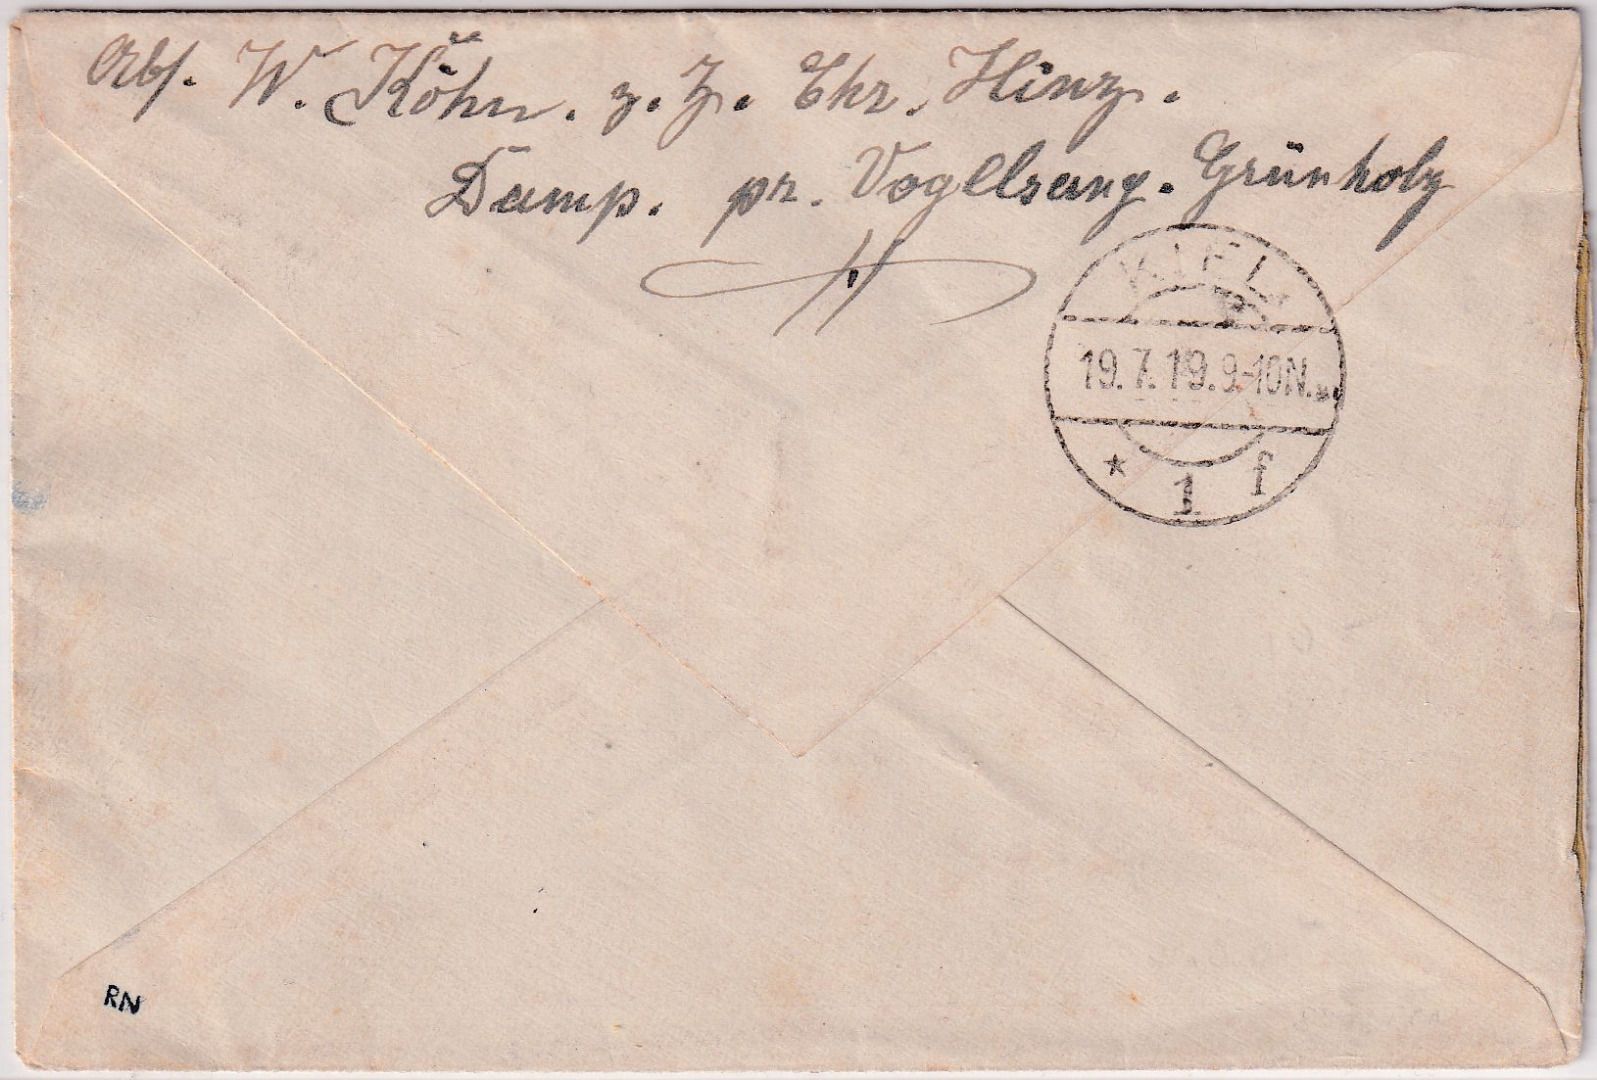 Abs. W. Köhn. z. Z. Chr. Hinz.
Damp. pr. Voglsang. Grünholz
KIEL
19.7.19.9-10N.
* 1 f
RN